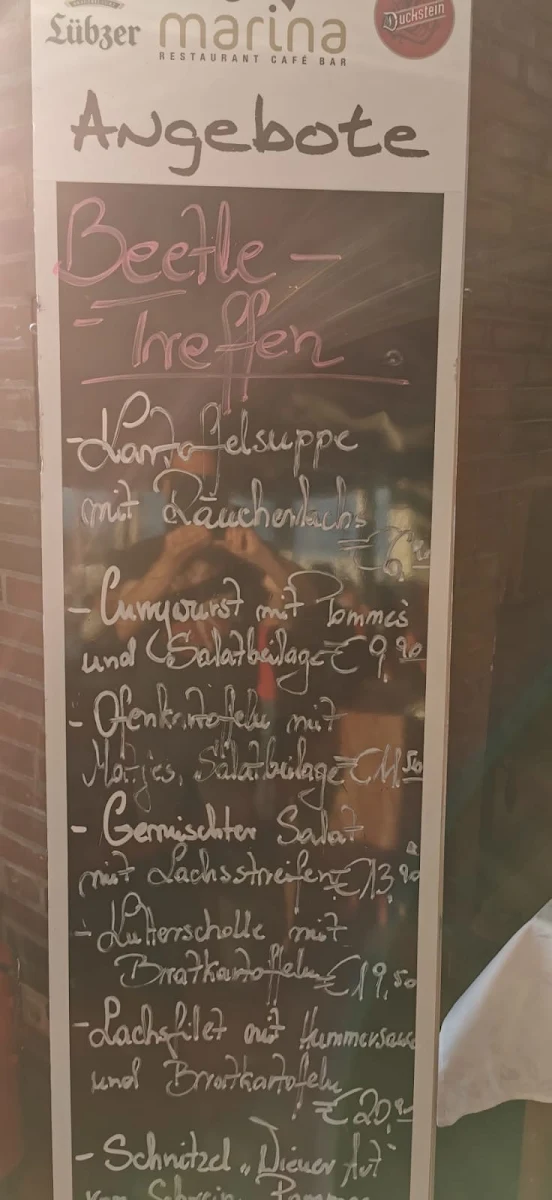 Lübzer
marina
Duckstein
RESTAURANT CAFÉ BAR
Angebote
Beetle -
Treffen
- Kartoffelsuppe
mit Räucherlachs
€ 6,
- Currywurst mit Pommes
und Salatbeilage € 9,90
- Ofenkartoffeln mit
Matjes, Salatbeilage € 11,50
- Gemischter Salat
mit Lachsstreifen € 13,90
- Kutterscholle mit
Bratkartoffeln € 19,50
- Lachsfilet mit Hummersauce
und Bratkartoffeln
€ 20,
- Schnitzel „Wiener Art“
vom Schwein, Pommes